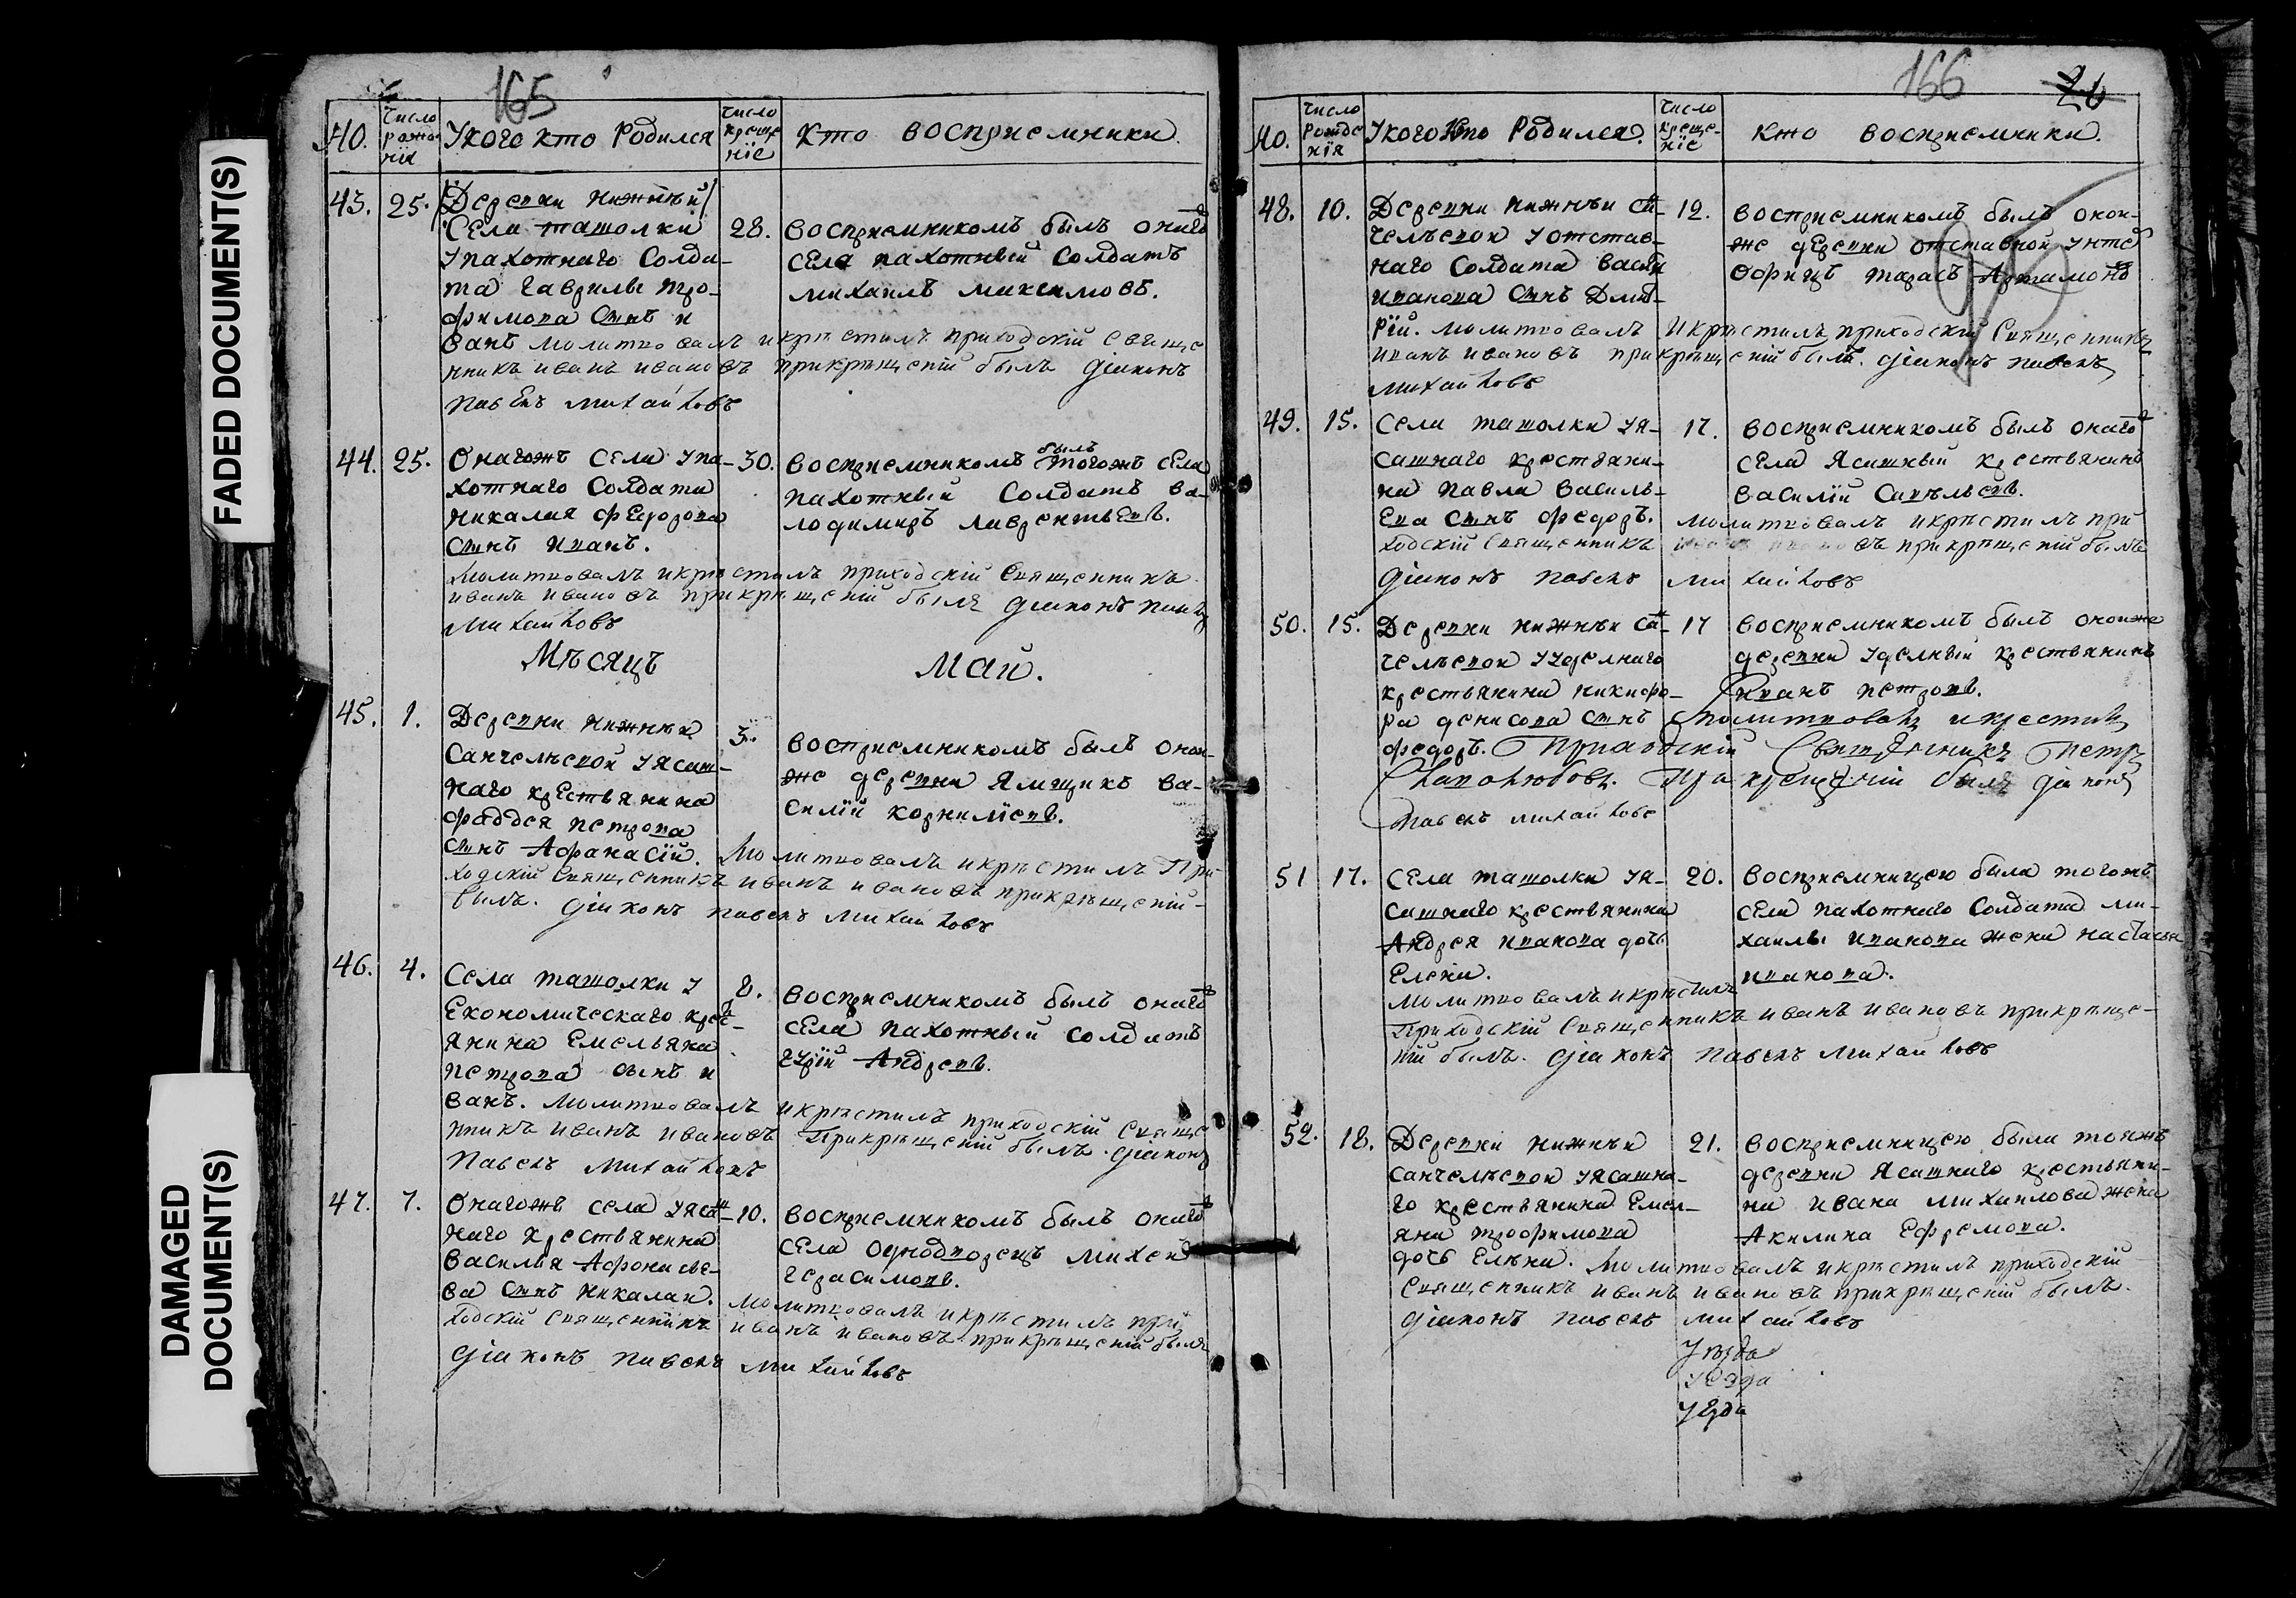 FADED DOCUMENT(S)
DAMAGED
DOCUMENT(S)
165
Но.
Число рожденія
У кого кто родился
Число крещеніе
кто восприемники.
43. 25.
Деревни нижнѣй
Села ташолки
у пахотнаго Солда-
та гаврилы тро-
фимова Сынъ и
ванъ молитвовалъ и крѣстилъ приходскій Свяще
нникъ иванъ ивановъ при крѣщеній былъ діаконъ
павелъ михайловъ
28. восприемникомъ былъ онаго
села пахотный Солдатъ
михаилъ максимовъ.
44. 25.
Онагожъ села у па-
хотнаго Солдата
никалая федорова
Сынъ иванъ.
30. восприемникомъ былъ тогожъ села
пахотный Солдатъ во-
лодимиръ лаврентьевъ.
молитвовалъ и крѣстилъ приходскій Священникъ
иванъ ивановъ при крѣщеній былъ діаконъ павелъ
михайловъ
Мѣсяцъ май.
45. 1.
Деревни нижнѣи
Санчелѣевой у ясаш-
наго крестьянина
фаддея петрова
сынъ Афанасій. Молитвовалъ и крѣстилъ При-
ходскій Священникъ иванъ ивановъ при крѣщеній-
былъ. діаконъ павелъ михайловъ
3. восприемникомъ былъ оной-
же деревни Ямщикъ ва-
силій корниліевъ.
46. 4.
Села ташолки у
Економическаго крес-
янина Емельяна
петрова сынъ и
ванъ. молитвовалъ и крѣстилъ приходскій Свяще
нникъ иванъ ивановъ При крѣщеній былъ діаконъ
Павелъ михайловъ
8. восприемникомъ былъ онаго
села пахотный солдатъ
гурій Андреевъ.
47. 7.
Онагожъ села у ясаш-
наго крестьянина
василья Афонасье-
ва Сынъ никалаи. молитвовалъ и крѣстилъ при
ходскій Священникъ иванъ ивановъ при крѣщеній былъ
діаконъ павелъ михайловъ
10. восприемникомъ былъ онаго
села однодворецъ михей
герасимовъ.
166
26
Но.
Число рожденія
У кого кто родился.
Число крещеніе
кто восприемники.
48. 10.
Деревни нижнѣи сан-
челѣевои у отстав-
наго Солдата васил
иванова Сынъ Дмит-
рій. молитвовалъ и крѣстилъ приходскій Священникъ
иванъ ивановъ при крѣщеній былъ. діаконъ павелъ
михайловъ
12. восприемникомъ былъ оной-
же деревни отставной унтеръ
офицеръ тарасъ Артамоновъ
49. 15.
Села ташолки у я-
сашнаго крестьяни-
на павла василь-
ева сынъ федоръ. молитвовалъ и крѣстилъ при
ходскій Священникъ иванъ ивановъ при крѣщеній былъ
діаконъ павелъ михайловъ
17. восприемникомъ былъ онаго
села Ясашный крестьянинъ
василій Савѣльевъ.
50. 15.
Деревни нижнѣи сан-
челѣевои у уделнаго
крестьянина никифо-
ра денисова сынъ молитвовалъ и крестилъ
федоръ. Приходскій Священникъ Петръ
При крещеній былъ діаконъ
Павелъ михайловъ
17 восприемникомъ былъ онойже
деревни уделный крестьянинъ
иванъ петровъ.
51 17.
Села ташолки у я-
сашнаго крестьянина
Андрея иванова дочь
Елена.
молитвовалъ и крѣстилъ
Приходскій Священникъ иванъ ивановъ при крѣще-
ній былъ. діаконъ павелъ михайловъ
20. восприемницею была тогожъ
села пахотнаго Солдата ми-
хаилы иванова жена настасья
иванова.
52. 18.
Деревни нижнѣи
санчелѣевои у ясашна-
го крестьянина Емел-
яна трофимова
дочь Елѣна. Молитвовалъ и крѣстилъ приходскій
Священникъ иванъ ивановъ при крѣщеній былъ.
діаконъ павелъ михайловъ
21. восприемницею была тояжъ
деревни Ясашнаго крестьяни-
на ивана михаилова жена
Акилина Ефремова.
Уезда
уезда
уезда